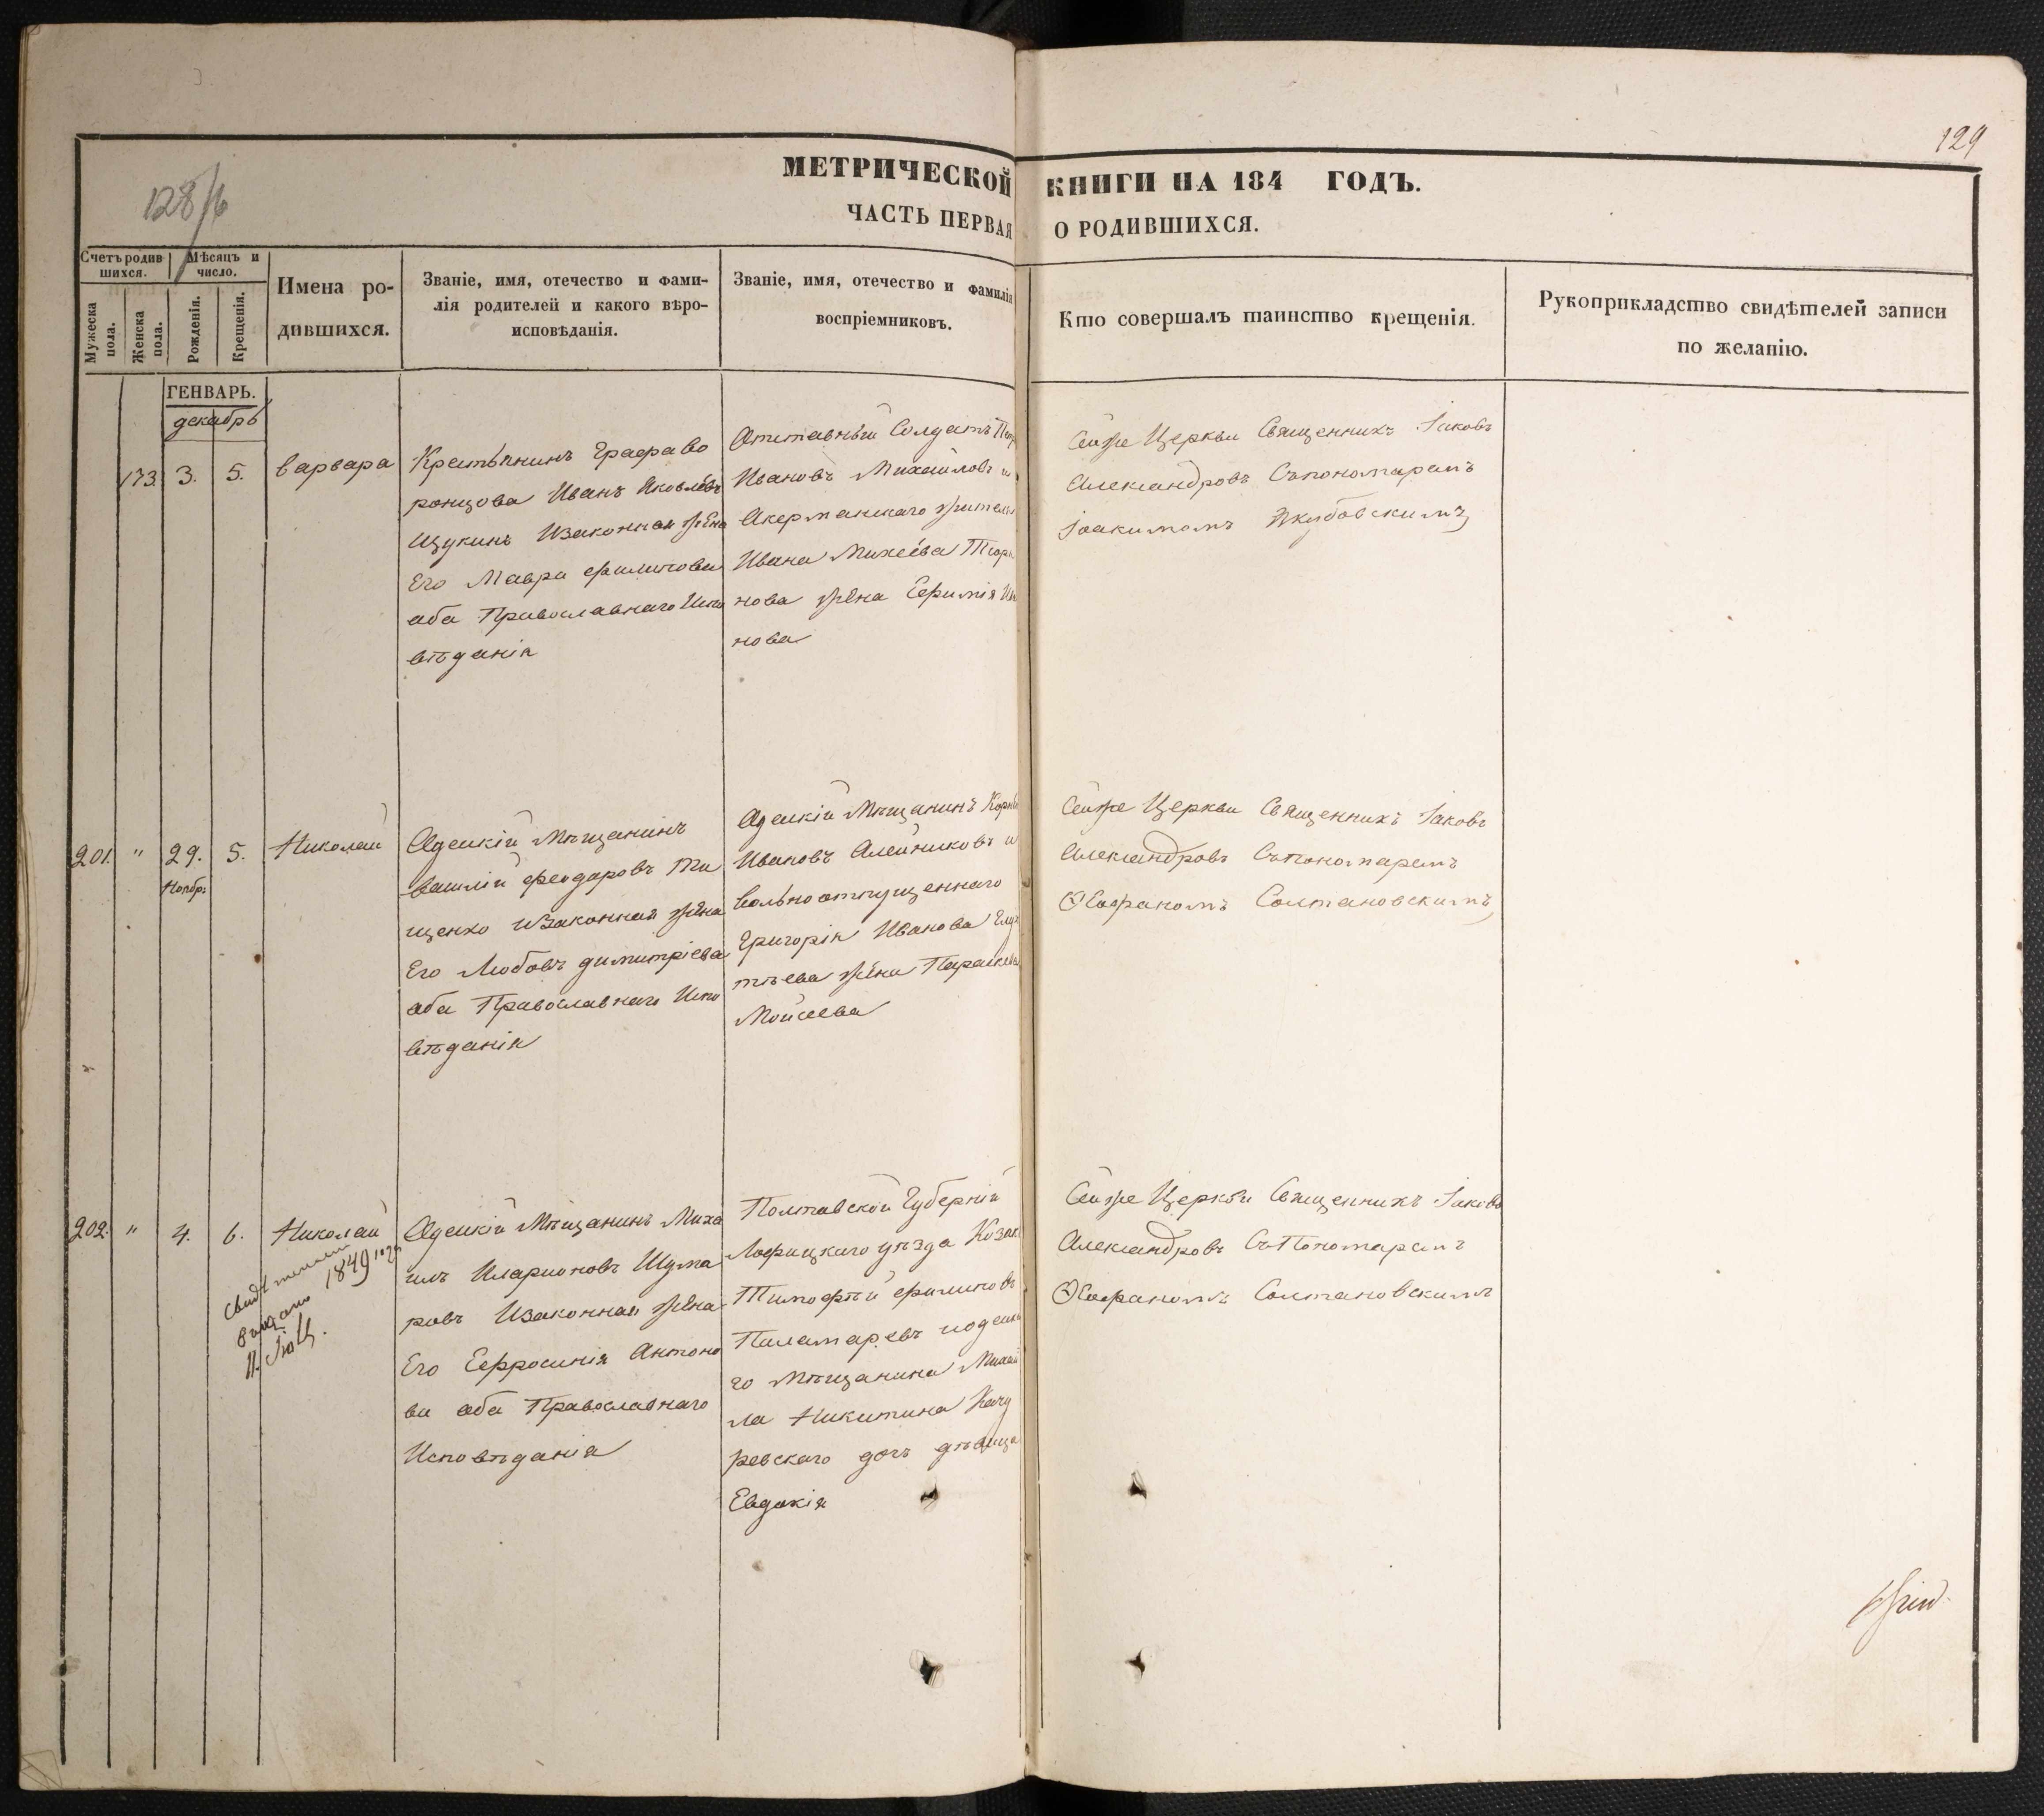 129
128/б
МЕТРИЧЕСКОЙ КНИГИ НА 184 ГОДЪ.
ЧАСТЬ ПЕРВАЯ О РОДИВШИХСЯ.
Счетъ родив
шихся.
Мѣсяцъ и
число.
Мужеска
пола.
Женска
пола.
Рожденія.
Крещенія.
Имена ро-
дившихся.
Званіе, имя, отечество и фами-
лія родителей и какого вѣро-
исповѣданія.
Званіе, имя, отечество и фамилія
воспріемниковъ.
Кто совершалъ таинство крещенія.
Рукоприкладство свидѣтелей записи
по желанію.
ГЕНВАРЬ.
декабрь
173 3. 5. Варвара
Крестьянинъ Графа Во
ронцова Иванъ Яковлевъ
Щукинъ Изаконная жена
Его Мавра Филипова
оба Православнаго Испо
вѣданія
Отставный Солдатъ
Ивановъ Михайловъ и
Акерманскаго жителя
Ивана Михеева
нова жена Ефимія Ива
нова
Сейже Церкви Священникъ Іаковъ
Александровъ Съпономаремъ
Іоакимомъ Якубовскимъ
201. " 29. 5. Николай
Ноябрь
Одескій Мѣщанинъ
Василій Феодаровъ Ти
щенко Изаконная жена
Его Любовъ Димитріева
оба Православнаго Испо
вѣданія
Одескій Мѣщанинъ
Ивановъ Алейниковъ и
вольноотпущеннаго
Григорія Иванова
тьева жена Параскева
Мойсеева
Сейже Церкви Священникъ Іаковъ
Александровъ Съпономаремъ
Ѳеофаномъ Солтановскимъ
202. " 4. 6. Николай
выдано 1849
Одескій Мѣщанинъ Миха
илъ Иларионовъ Шума
ровъ Изаконная жена
Его Ефросинія Антоно
ва оба Православнаго
Исповѣданія
Полтавской Губерніи
уѣзда Козакъ
Тимофѣй Филиповъ
Паламаревъ иодеска
го Мѣщанина Михаи
ла Никитина Качу
ревскаго дочь дѣвица
Евдокія
Сейже Церкви Священникъ Іаковъ
Александровъ СъПономаремъ
Ѳеофаномъ Солтановскимъ